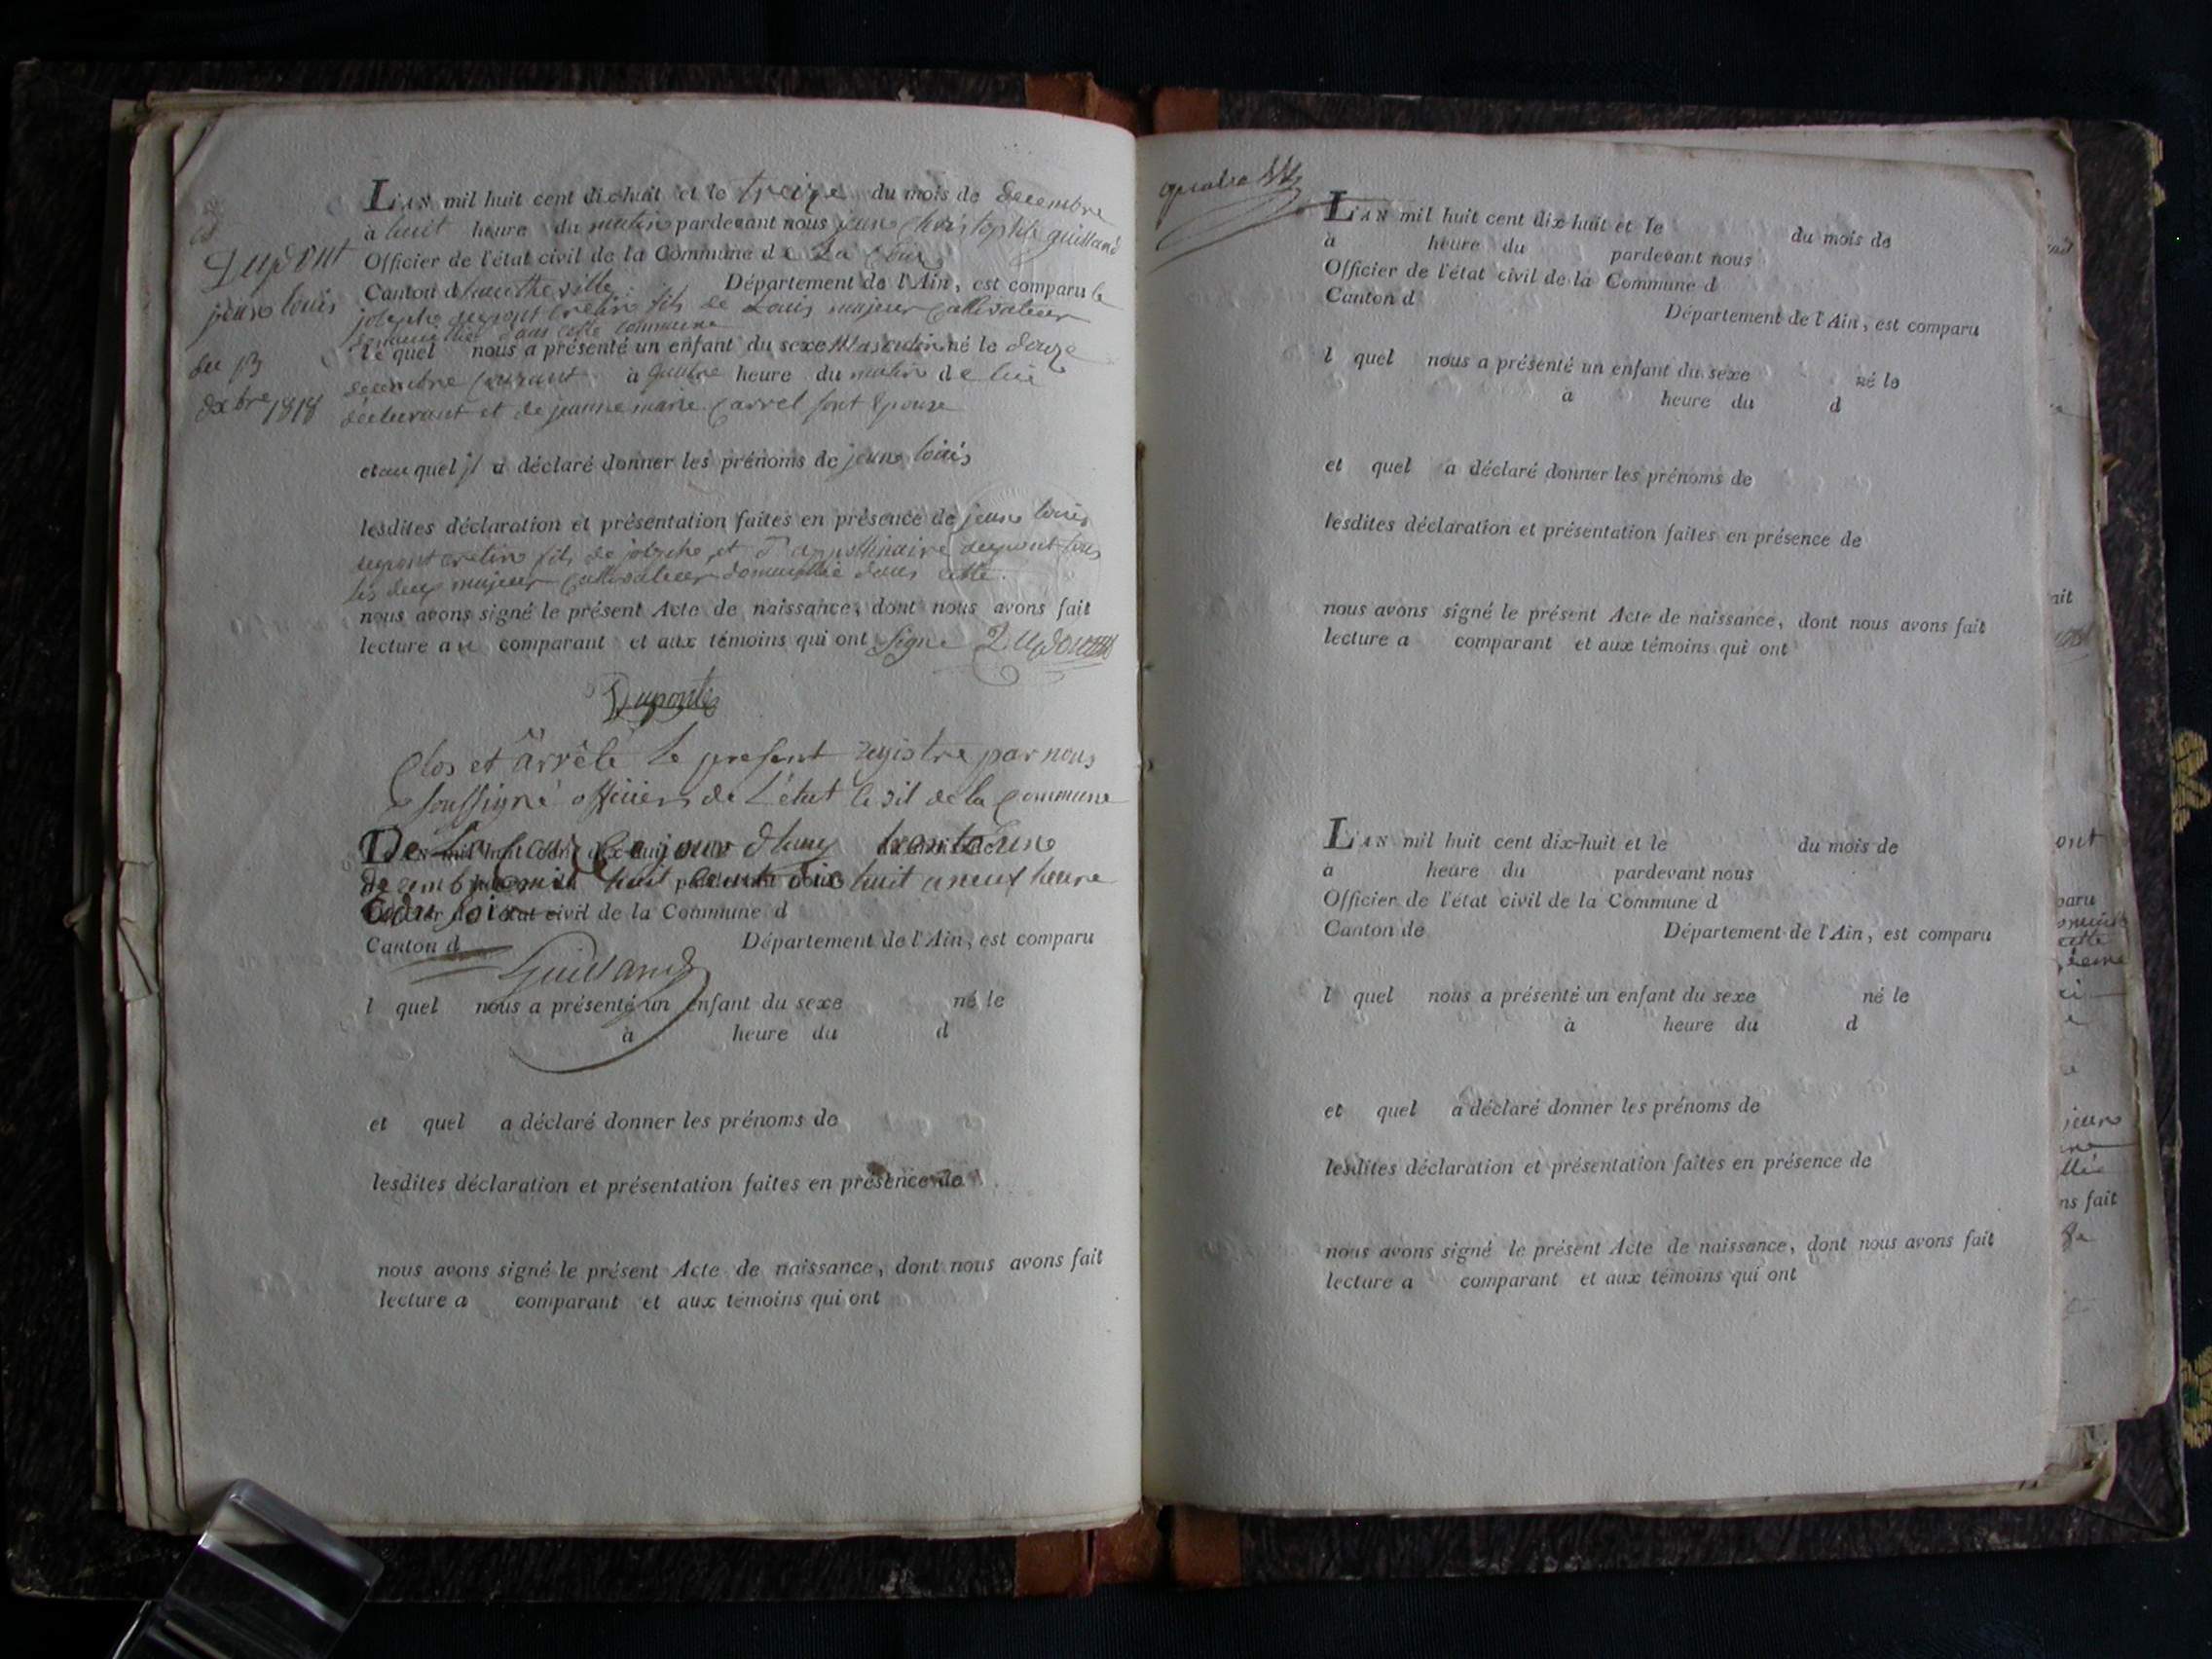 Dupont
jean louis
du 13
dxbre 1818
L'AN mil huit cent dix-huit et le treize du mois de decembre
à huit heure du matin pardevant nous jean christophle guilland
Officier de l'état civil de la Commune de La
Canton d'hauteville Département de l'Ain, est comparu le
joseph dupont cretin fils de Louis majeur cultivateur
domicilié dans cette commune
le quel nous a présenté un enfant du sexe Masculin né le douze
decembre courant à quatre heure du matin de lui
declarant et de jeanne marie carrel sont Epouse
et au quel jl a déclaré donner les prénoms de jean louis
lesdites déclaration et présentation faites en présence de jean louis
dupont cretin fils de josephe et d'appollinaire dupont tous
les deux majeur cultivateur domicillié dans cette
nous avons signé le présent Acte de naissance, dont nous avons fait
lecture au comparant et aux témoins qui ont signé Dupont
Dupont
Clos et arrêté le present registre par nous
soussigné officier de L'etat Civil de la Commune
De ce jour d'huy trante une
decembre mil huit cent dix huit a neuf heure
du soir
Officier de l'état civil de la Commune d
Canton d Département de l'Ain, est comparu
Guilland
l quel nous a présenté un enfant du sexe né le
à heure du d
et quel a déclaré donner les prénoms de
lesdites déclaration et présentation faites en présence de
nous avons signé le présent Acte de naissance, dont nous avons fait
lecture a comparant et aux témoins qui ont
quatre
L'AN mil huit cent dix-huit et le du mois de
à heure du pardevant nous
Officier de l'état civil de la Commune d
Canton d Département de l'Ain, est comparu
l quel nous a présenté un enfant du sexe né le
à heure du d
et quel a déclaré donner les prénoms de
lesdites déclaration et présentation faites en présence de
nous avons signé le présent Acte de naissance, dont nous avons fait
lecture a comparant et aux témoins qui ont
L'AN mil huit cent dix-huit et le du mois de
à heure du pardevant nous
Officier de l'état civil de la Commune d
Canton de Département de l'Ain, est comparu
l quel nous a présenté un enfant du sexe né le
à heure du d
et quel a déclaré donner les prénoms de
lesdites déclaration et présentation faites en présence de
nous avons signé le présent Acte de naissance, dont nous avons fait
lecture a comparant et aux témoins qui ont